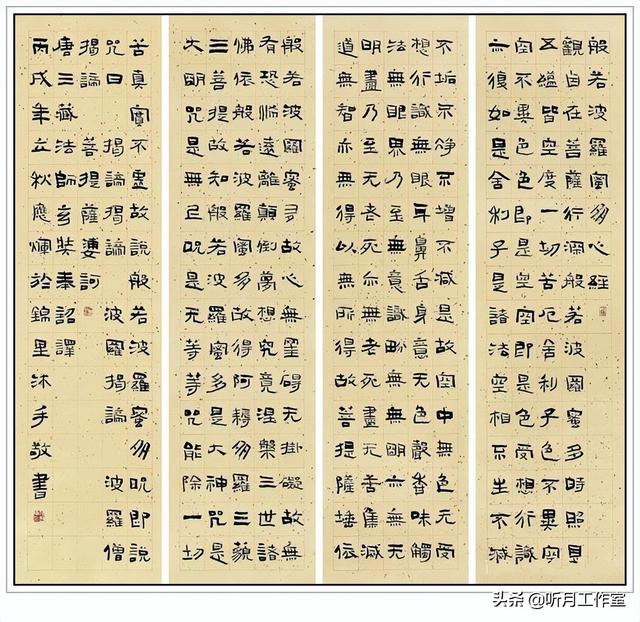 般若波羅蜜多心經
觀自在菩薩行深般若波羅蜜多時照見
五蘊皆空度一切苦厄舍利子色不異空
空不異色色即是空空即是色受想行識
亦復如是舍利子是諸法空相不生不滅
不垢不淨不增不減是故空中無色无受
想行識無眼耳鼻舌身意无色聲香味觸
法無眼界乃至無意識畍無無明亦無无
明盡乃至无老死亦無老死盡无苦集滅
道無智亦無得以無所得故菩提薩埵依
般若波羅蜜多故心無罣碍无掛礙故無
有恐怖遠離顛倒夢想究竟涅槃三世諸
佛依般若波羅蜜多故得阿耨多羅三藐
三菩提故知般若波羅蜜多是大神咒是
大明咒是無上咒是无等等咒能除一切
苦真實不虛故說般若波羅蜜多呪即說
咒曰 揭諦揭諦 波羅揭諦 波羅僧
揭諦 菩提薩婆訶
唐三藏法師玄奘奉詔譯
丙戌年立秋應煇於錦里沐手敬書
头条 @听月工作室